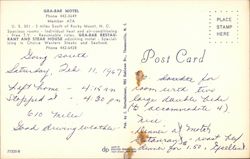 GRA-BAR MOTEL
Phone 442-3649
Member AIA
U. S. 301 - 5 Miles South of Rocky Mount, N. C.
Spacious rooms - Individual heat and air-conditioning
Free T.V. - Reasonable rates. GRA-BAR RESTAURANT AND STEAK HOUSE adjoining motel - Specializing in Choice Western Steaks and Seafood.
Phone 442-6458
Going south
Saturday, Feb 11, 1967
Left home - 4:15 AM
Stopped at - 4:30 PM
610 miles
Good driving weather
Post Card
PLACE
STAMP
HERE
$ double for
room with two
large double beds
(accommodate 4)
Nice
Dinner at Motel
Restaurant
dinner for 1.50